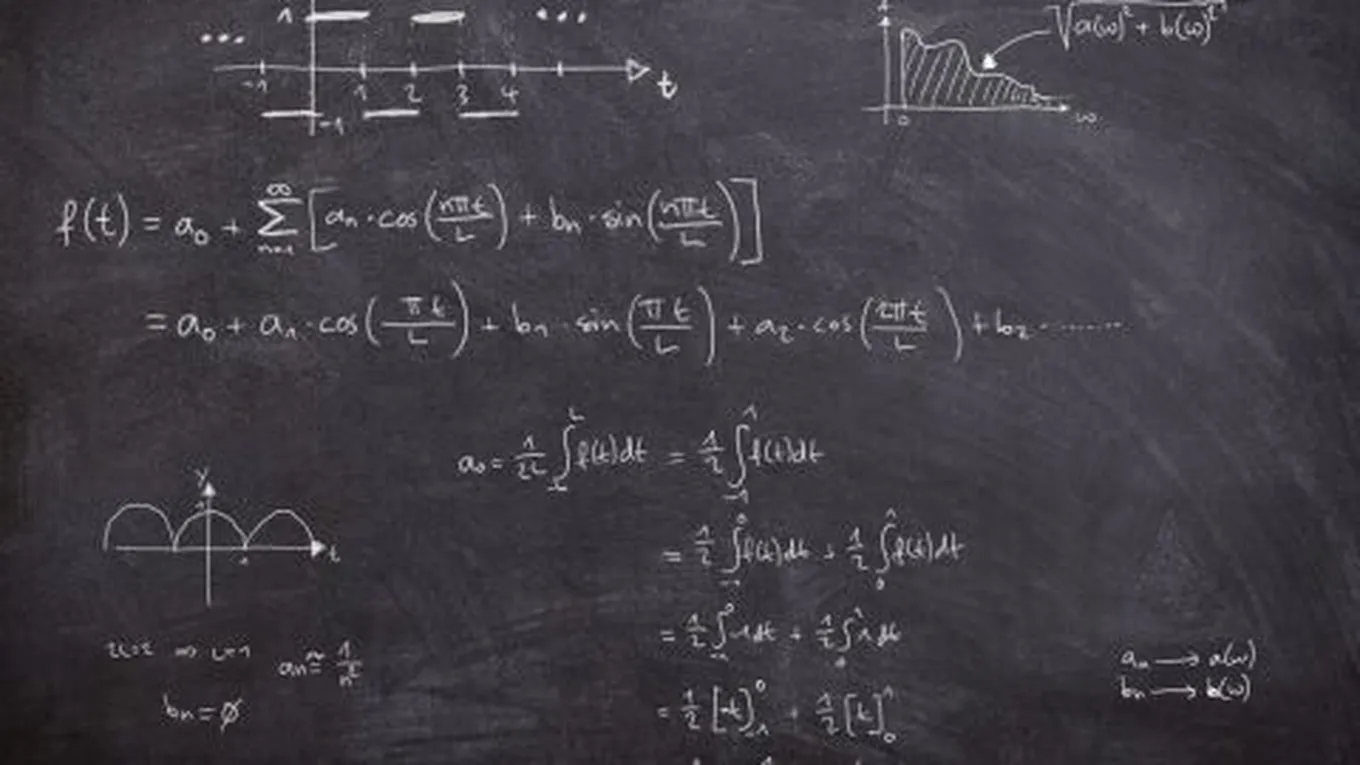 1 ...
...
-1 1 2 3 4 t
-1
√(a(ω)² + b(ω)²)
0 ω
f(t) = a₀ + ∑_{n=1}^{∞} [aₙ · cos(nπt/L) + bₙ · sin(nπt/L)]
= a₀ + a₁ · cos(πt/L) + b₁ · sin(πt/L) + a₂ · cos(2πt/L) + b₂ · ........
a₀ = 1/2L ∫_{-L}^{L} f(t)dt = 1/2 ∫_{-1}^{1} f(t)dt
= 1/2 ∫_{-1}^{0} f(t)dt + 1/2 ∫_{0}^{1} f(t)dt
= 1/2 ∫_{-1}^{0} -1dt + 1/2 ∫_{0}^{1} 1dt
= 1/2 [-t]_{-1}^{0} + 1/2 [t]_{0}^{1}
y
1 t
2L=2 ⇒ L=1 aₙ ≈ 1/n²
bₙ = ∅
aₙ → a(ω)
bₙ → b(ω)